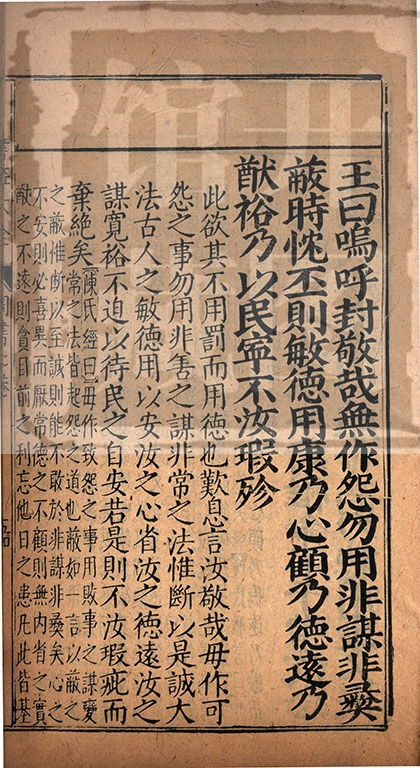 王曰嗚呼封敬哉無作怨勿用非謀非彝
蔽時忱丕則敏德用康乃心顧乃德遠乃
猷裕乃以民寧不汝瑕殄
此欲其不用罰而用德也歎息言汝敬哉毋作可
怨之事勿用非善之謀非常之法惟斷以是誠大
法古人之敏德用以安汝之心省汝之德遠汝之
謀寬裕不迫以待民之自安若是則不汝瑕疵而
棄絶矣陳氏經曰毋作致怨之事用敗事之謀變
常之法皆起怨之道也蔽如一言以蔽之
之蔽惟斷以至誠則能不敢於非謀非彝矣心之
不安則必喜異而厭常德之不顧則無内省之實
猷之不遠則貪目前之利忘他日之患凡此皆基